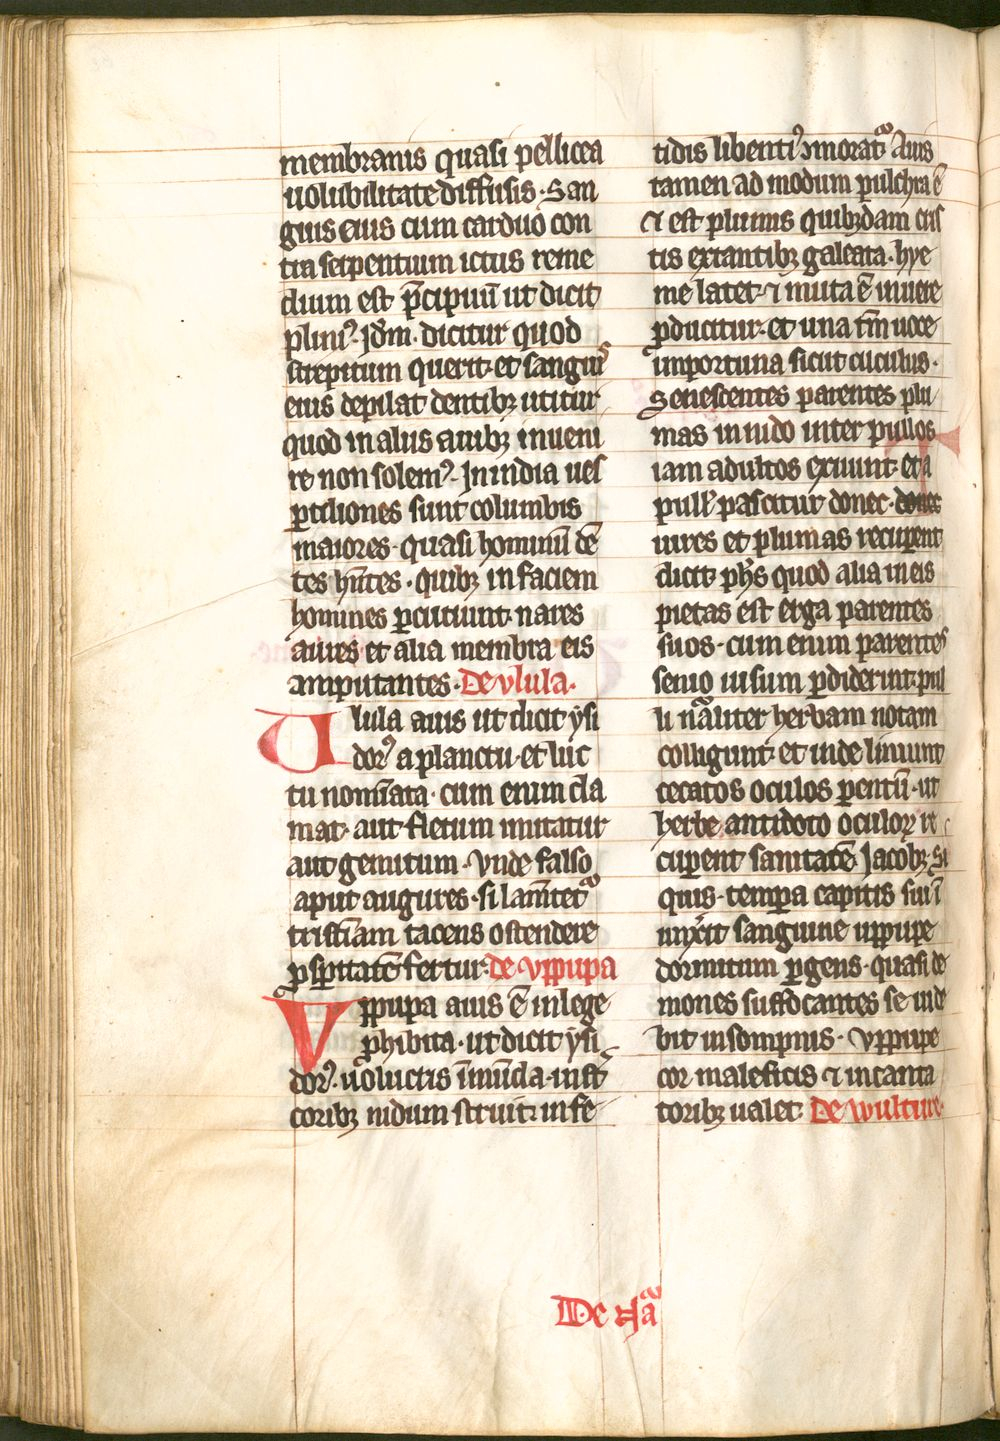 membranis quasi pellicea
uolubilitate diffusis · San
guis eius cum carduo con
tra serpentium ictus reme
dium est p̄cipuū ut dicit
pliniꝰ · Jdm̄ · dicitur quod
strepitum querit · et sanguis
eius depilat dentibꝫ utitur
quod in aliis auibꝫ inueni
re non solemꝰ · Jn india ues
ꝑtiliones sunt columbis
maiores · quasi hominū dē
tes hn̄tes · quibꝫ in faciem
homines ꝑcutiunt · nares
aures et alia membra eis
amputantes · De vlula ·
Ulula auis ut dicit ysi
dorꝰ a planctu · et luc
tu nomīata · cum enim cla
mat · aut fletum imitatur
aut gemitum · Vnde falso
aput augures · si lamētetᷓ
tristiciam tacens ostendere
ꝓsꝑitatē fertur · de vppupa
Vppupa auis ē in lege
ꝓhibita · ut dicit ysi
dorꝰ · uoluc̄ris īmūda · in st̄
coribꝫ nidum struit · in fe
tidis libentiꝰ ꝯmoratᷓ Auis
tamen ad modum pulchra ē
⁊ est plumis quibꝫdam cris
tis extantibꝫ galeata · hye
me latet · ⁊ muta ē in uere
ꝓducitur · et una tm̄ uoce
importuna sicut cuculus ·
Senescentes parentes plu
mas in nido inter pullos
iam adultos exuunt · et a
pull' pascitur donec · donec
uires et plumas recuꝑent
dicit ph̄s quod alia in eis
pietas est erga parentes
suos · cum enim parentes
senio uisum ꝑdiderint · pul
li nāliter herbam notam
colligunt · et inde liniunt
cecatos oculos ꝑentū · ut
herbe antidoto oculoꝝ re
cuꝑent sanitatē Jacobꝫ · Si
quis · tempa capitis sui ī
unxerit sanguine uppupe
dormitum ꝑgens · quasi de
mones suffocantes se uide
bit in sompnis · Vppupe
cor maleficis ⁊ incanta
toribꝫ ualet · De wulture ·